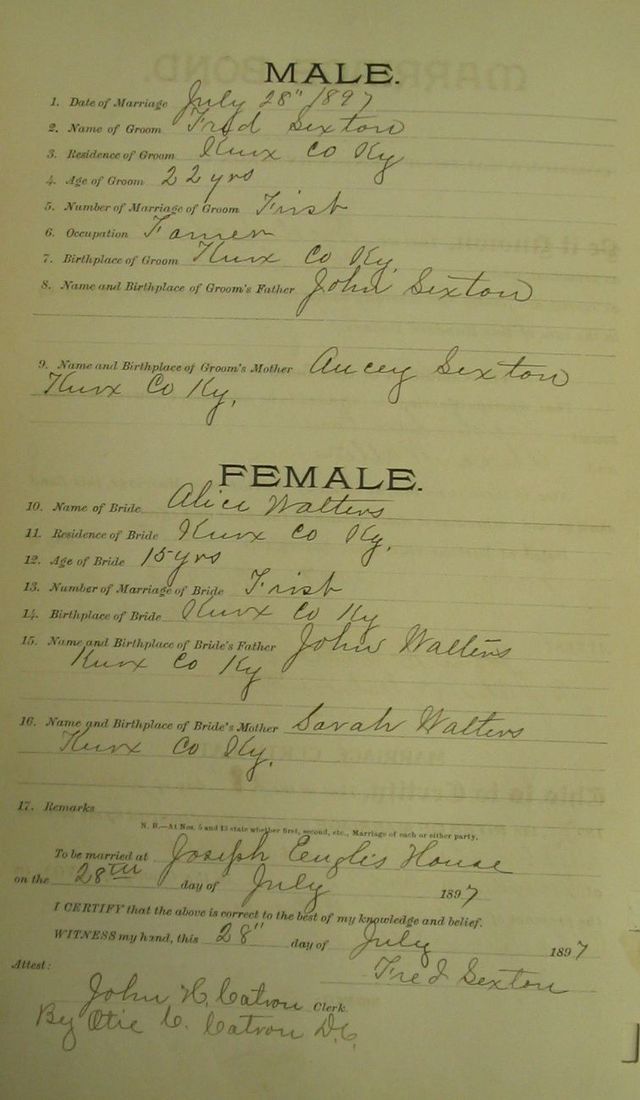 MALE.
1. Date of Marriage July 28" 1897
2. Name of Groom Fred Sexton
3. Residence of Groom Knox Co Ky
4. Age of Groom 22 yrs
5. Number of Marriage of Groom First
6. Occupation Farmer
7. Birthplace of Groom Knox Co Ky
8. Name and Birthplace of Groom's Father John Sexton
9. Name and Birthplace of Groom's Mother Sexton
Knox Co Ky,
FEMALE.
10. Name of Bride Alice Walters
11. Residence of Bride Knox Co Ky,
12. Age of Bride 15 yrs
13. Number of Marriage of Bride First
14. Birthplace of Bride Knox Co Ky
15. Name and Birthplace of Bride's Father John Walters
Knox Co Ky
16. Name and Birthplace of Bride's Mother Sarah Walters
Knox Co Ky,
17. Remarks
N. B.—At Nos. 5 and 13 state whether first, second, etc., Marriage of each or either party.
To be married at Joseph House
on the 28th day of July 1897
I CERTIFY that the above is correct to the best of my knowledge and belief.
WITNESS my hand, this 28" day of July 1897
Fred Sexton
Attest:
John H. Catron Clerk.
By Otie C. Catron D.C.